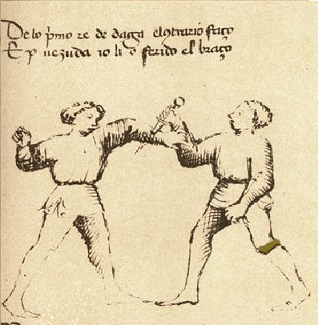 De lo pmo re de daga elo ꝯtrario faço
E ꝑ uezuda io li o ferido el braço